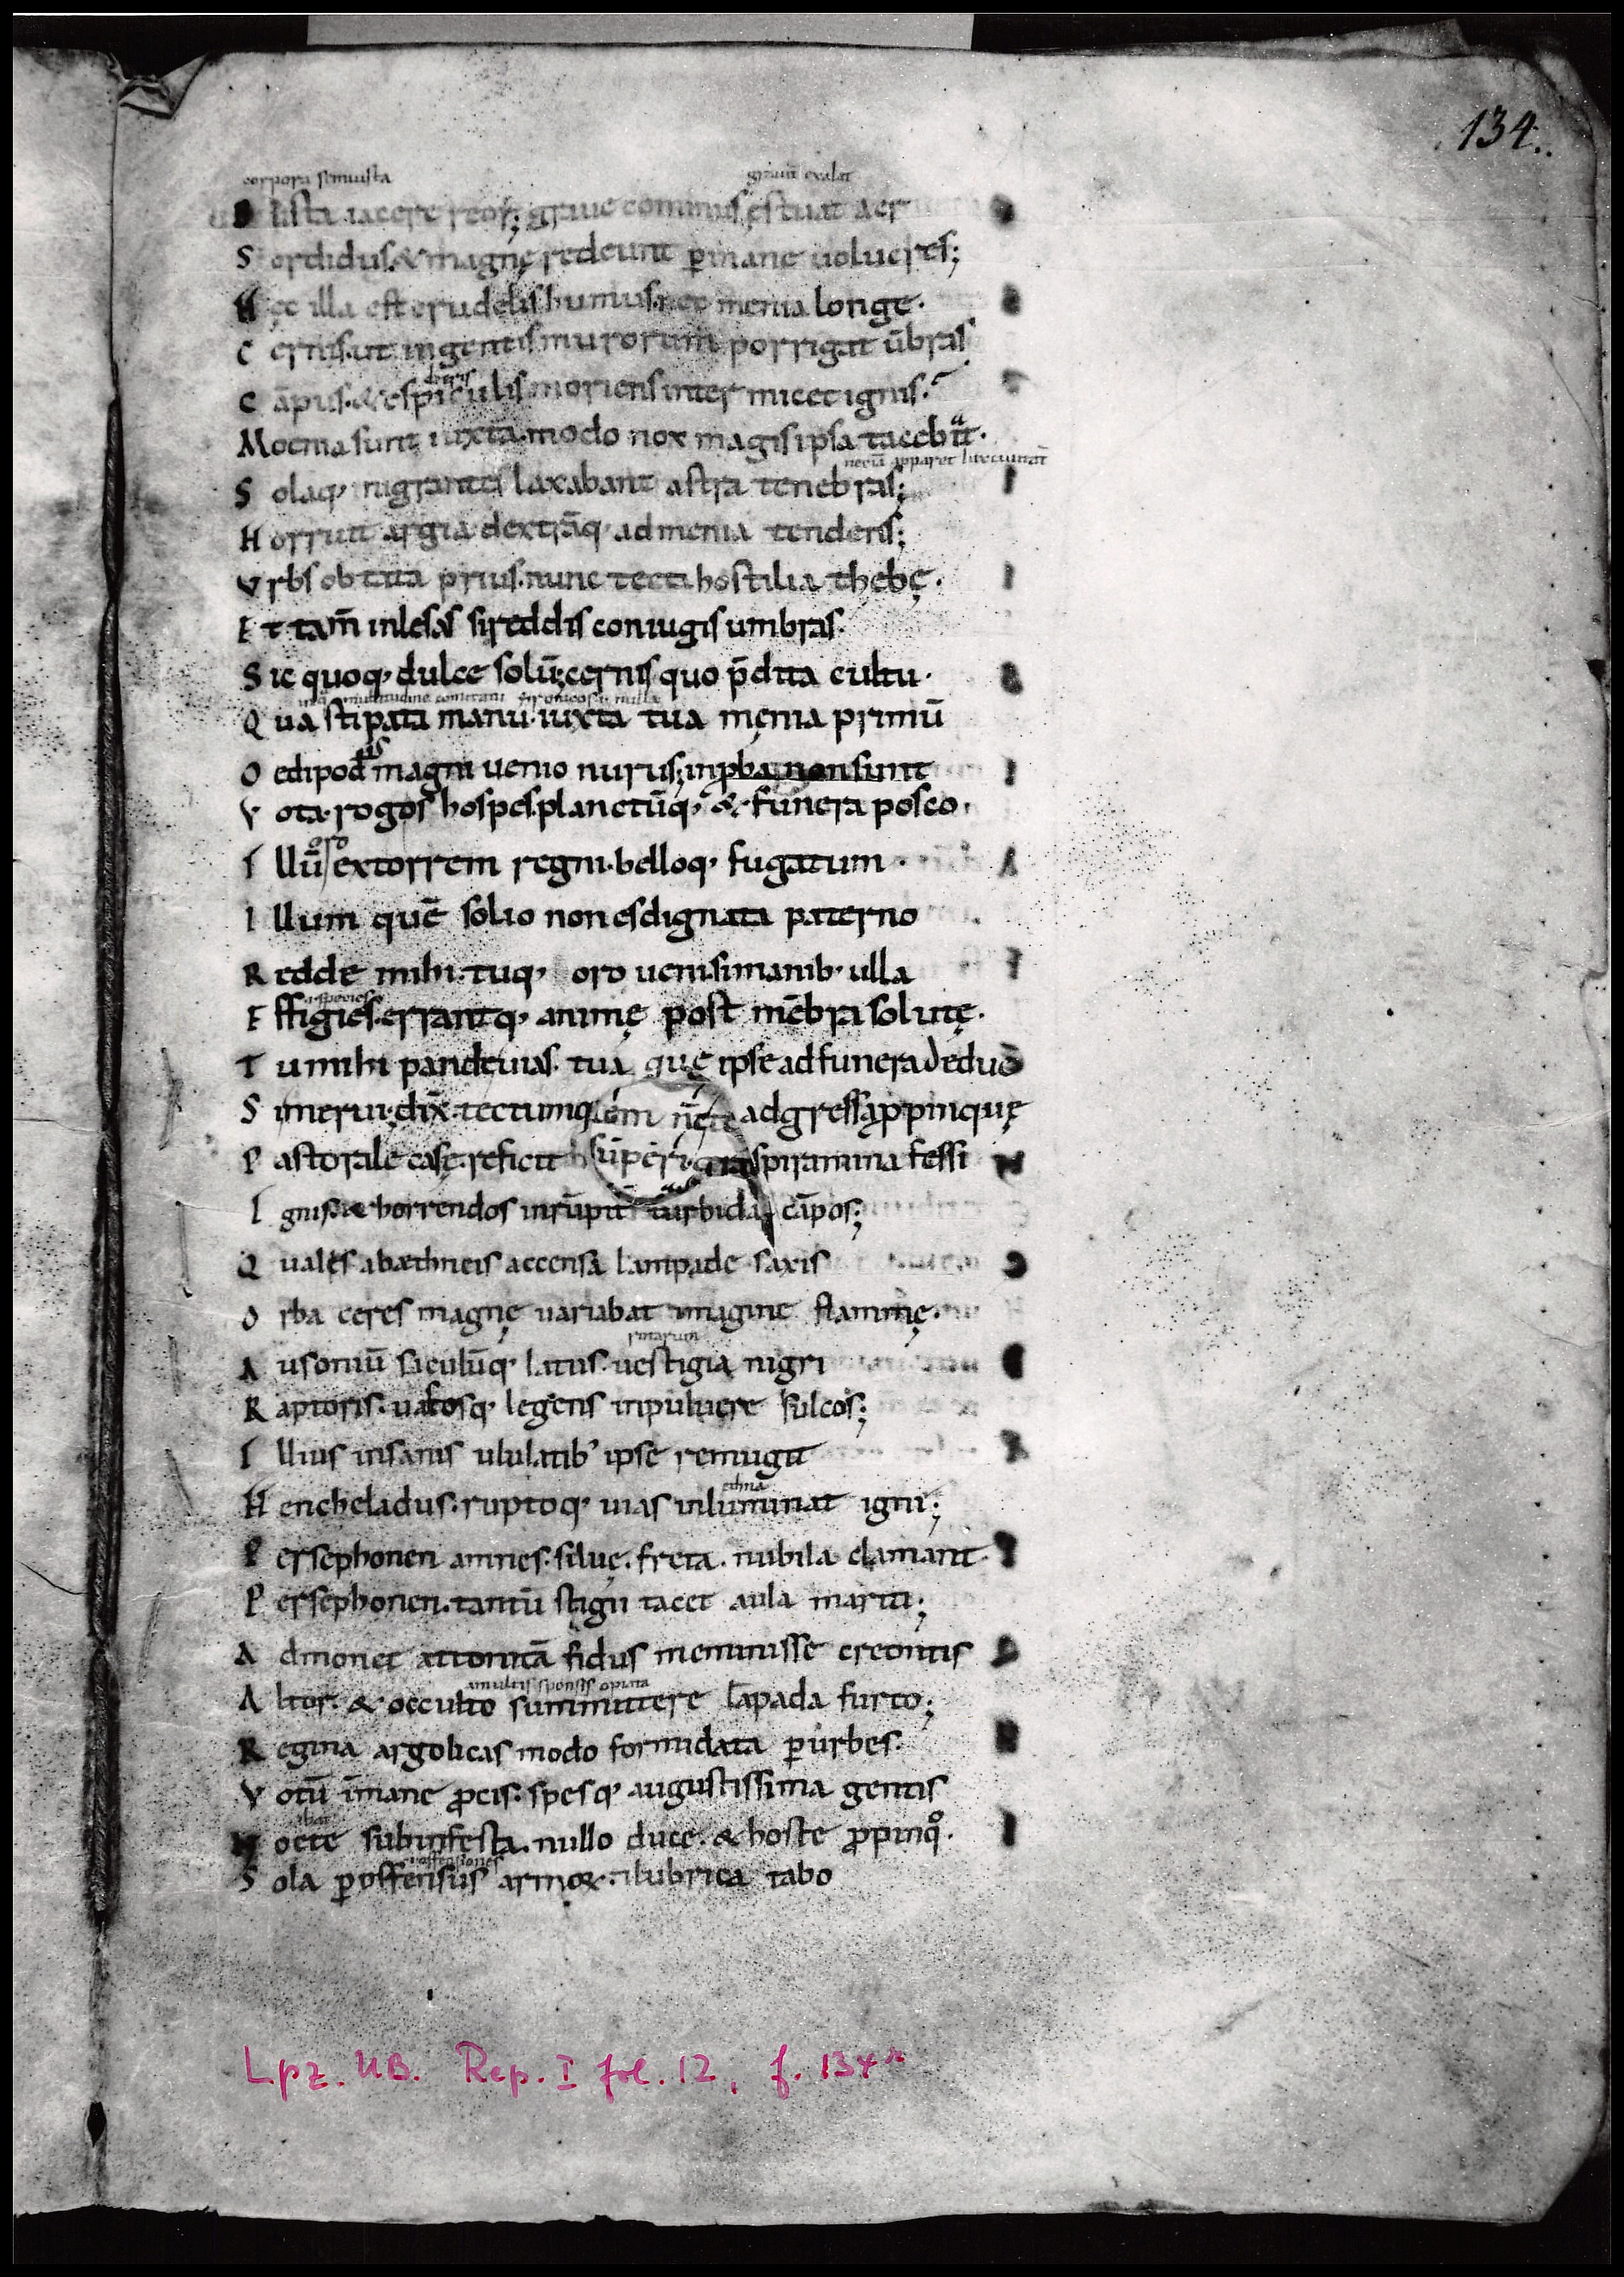 134.
corpora semiusta grauit exalat
Busta iacere reor; graue comminus ęstuat aer
Sordidus. & magnę redeunt ꝑ inane uolucres;
Hęc illa est crudelis humus. nec menia longe.
Cernis. ut ingentis murorum porrigat ūbras
Cāpus. & e speculis moriens intermicet ignis.
Moenia sunt iuxta. modo nox magis ipsa tacebat.
Solaq; nigrantes laxabant astra tenebras;
Horruit argia dextrāq; ad menia tendens;
Vrbs obtata prius. nunc tecta hostilia thebę.
Et tam̄ inlesas si reddis coniugis umbras.
Sic quoq; dulce solū; cernis quo p̄dita cultu.
Qua stipata manu. iuxta tua męnia primū
Oedipodis magni uenio nurus; inproba non sunt
Vota. rogos hospes. planctūq; & funera posco.
oro
Illū extorrem regni. belloq; fugatum.
Illum quē solio non es dignata paterno
Redde mihi. tuq; oro ueni. si manib; ulla
Effigies. errantq; animę post mēbra solutę.
Tu mihi pande uias. tua quę ipse ad funera deduc
Si merui. dix̄. tectumq; adgressa ꝓpinquę
Pastorale casę. reficit spiramina fessi
Ignis & horrendos inrūpit turbida cāpos;
Quales ab ęthneis accensa lampade saxis
Orba ceres magnę uariabat imagine flammę.
rotarum
Ausoniū siculūq; latus. uestigia nigri
Raptoris. uastosq; legens in puluere sulcos;
Illius insanis ululatib; ipse remugit
ethna
Hencheladus. ruptoq; uias inluminat igni;
Persephonen amnes. siluę. freta. nubila clamant.
Persephonen. tantū stigii tacet aula mariti;
Admonet attonitā fidus meminisse creontis
amultis sponsis optata
Altor. & occulto summittere lāpada furto;
Regina argolicas modo formidata ꝑ urbes.
Votū inmane ꝓcis. spesq; augustissima gentis
ibat
Nocte sub infesta. nullo duce. & hoste ꝓpinquo.
offensiones
Sola ꝑ offensus armoꝝ. & lubrica tabo
Lpz. UB. Rep. I fol. 12, f. 134r